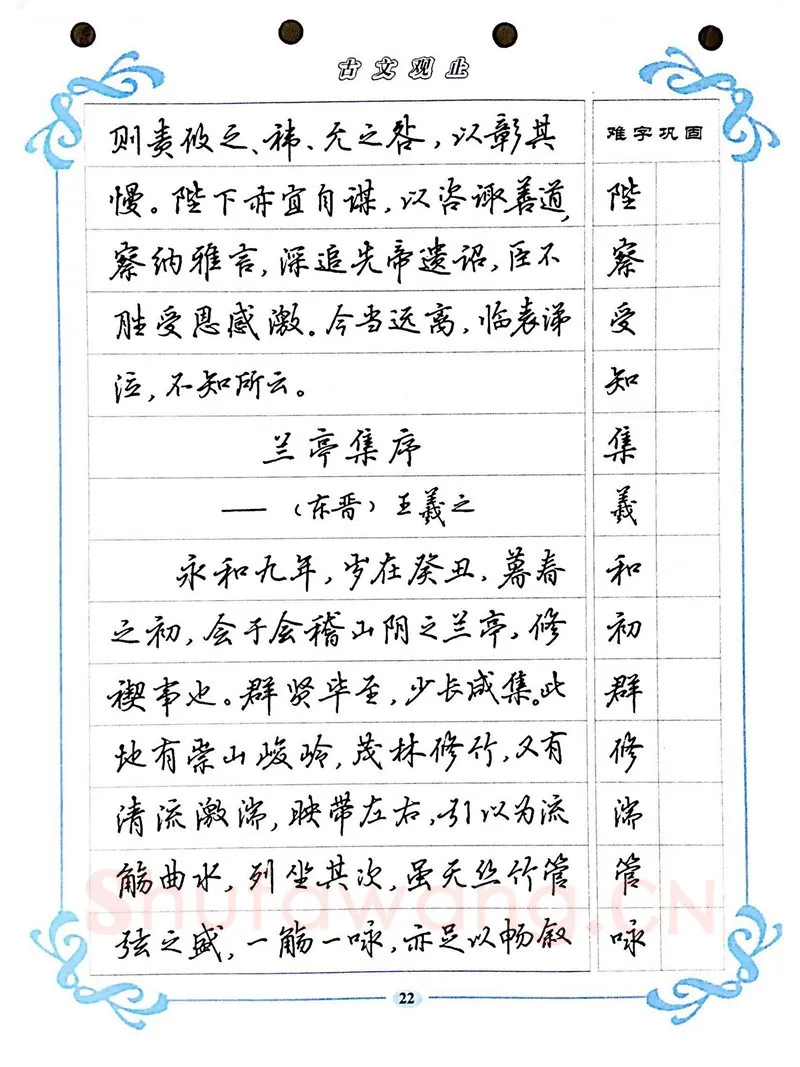 古文观止
则责攸之、祎、允之咎，以彰其
慢。陛下亦宜自谋，以咨诹善道，
察纳雅言，深追先帝遗诏，臣不
胜受恩感激。今当远离，临表涕
泣，不知所云。
兰亭集序
——（东晋）王羲之
永和九年，岁在癸丑，暮春
之初，会于会稽山阴之兰亭，修
禊事也。群贤毕至，少长咸集。此
地有崇山峻岭，茂林修竹，又有
清流激湍，映带左右，引以为流
觞曲水，列坐其次，虽无丝竹管
弦之盛，一觞一咏，亦足以畅叙
难字巩固
陛
察
受
知
集
羲
和
初
群
修
湍
管
咏
22
Shufawang.CN